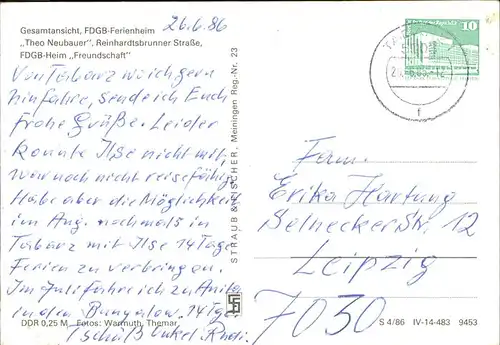 Gesamtansicht, FDGB-Ferienheim
„Theo Neubauer“, Reinhardtsbrunner Straße,
FDGB-Heim „Freundschaft“
26.6.86
Von Tabarz wo ich gern
hinfahre, sende ich Euch
frohe Grüße. Leider
konnte Ilse nicht mit,
war noch nicht reisefähig.
Habe aber die Möglichkeit
im Aug. nochmals in
Tabarz mit Ilse 14 Tage
Ferien zu verbringen.
Im Juli fahre ich zu Anita
in den Bungalow 14 Tge.
Onkel Rudi.
DDR 0,25 M Fotos: Warmuth, Themar
STRAUB & FISCHER, Meiningen Reg.-Nr. 23
10
f
Fam.
Erika Hartung
Selneckerstr. 12
Leipzig
7030
S 4/86 IV-14-483 9453